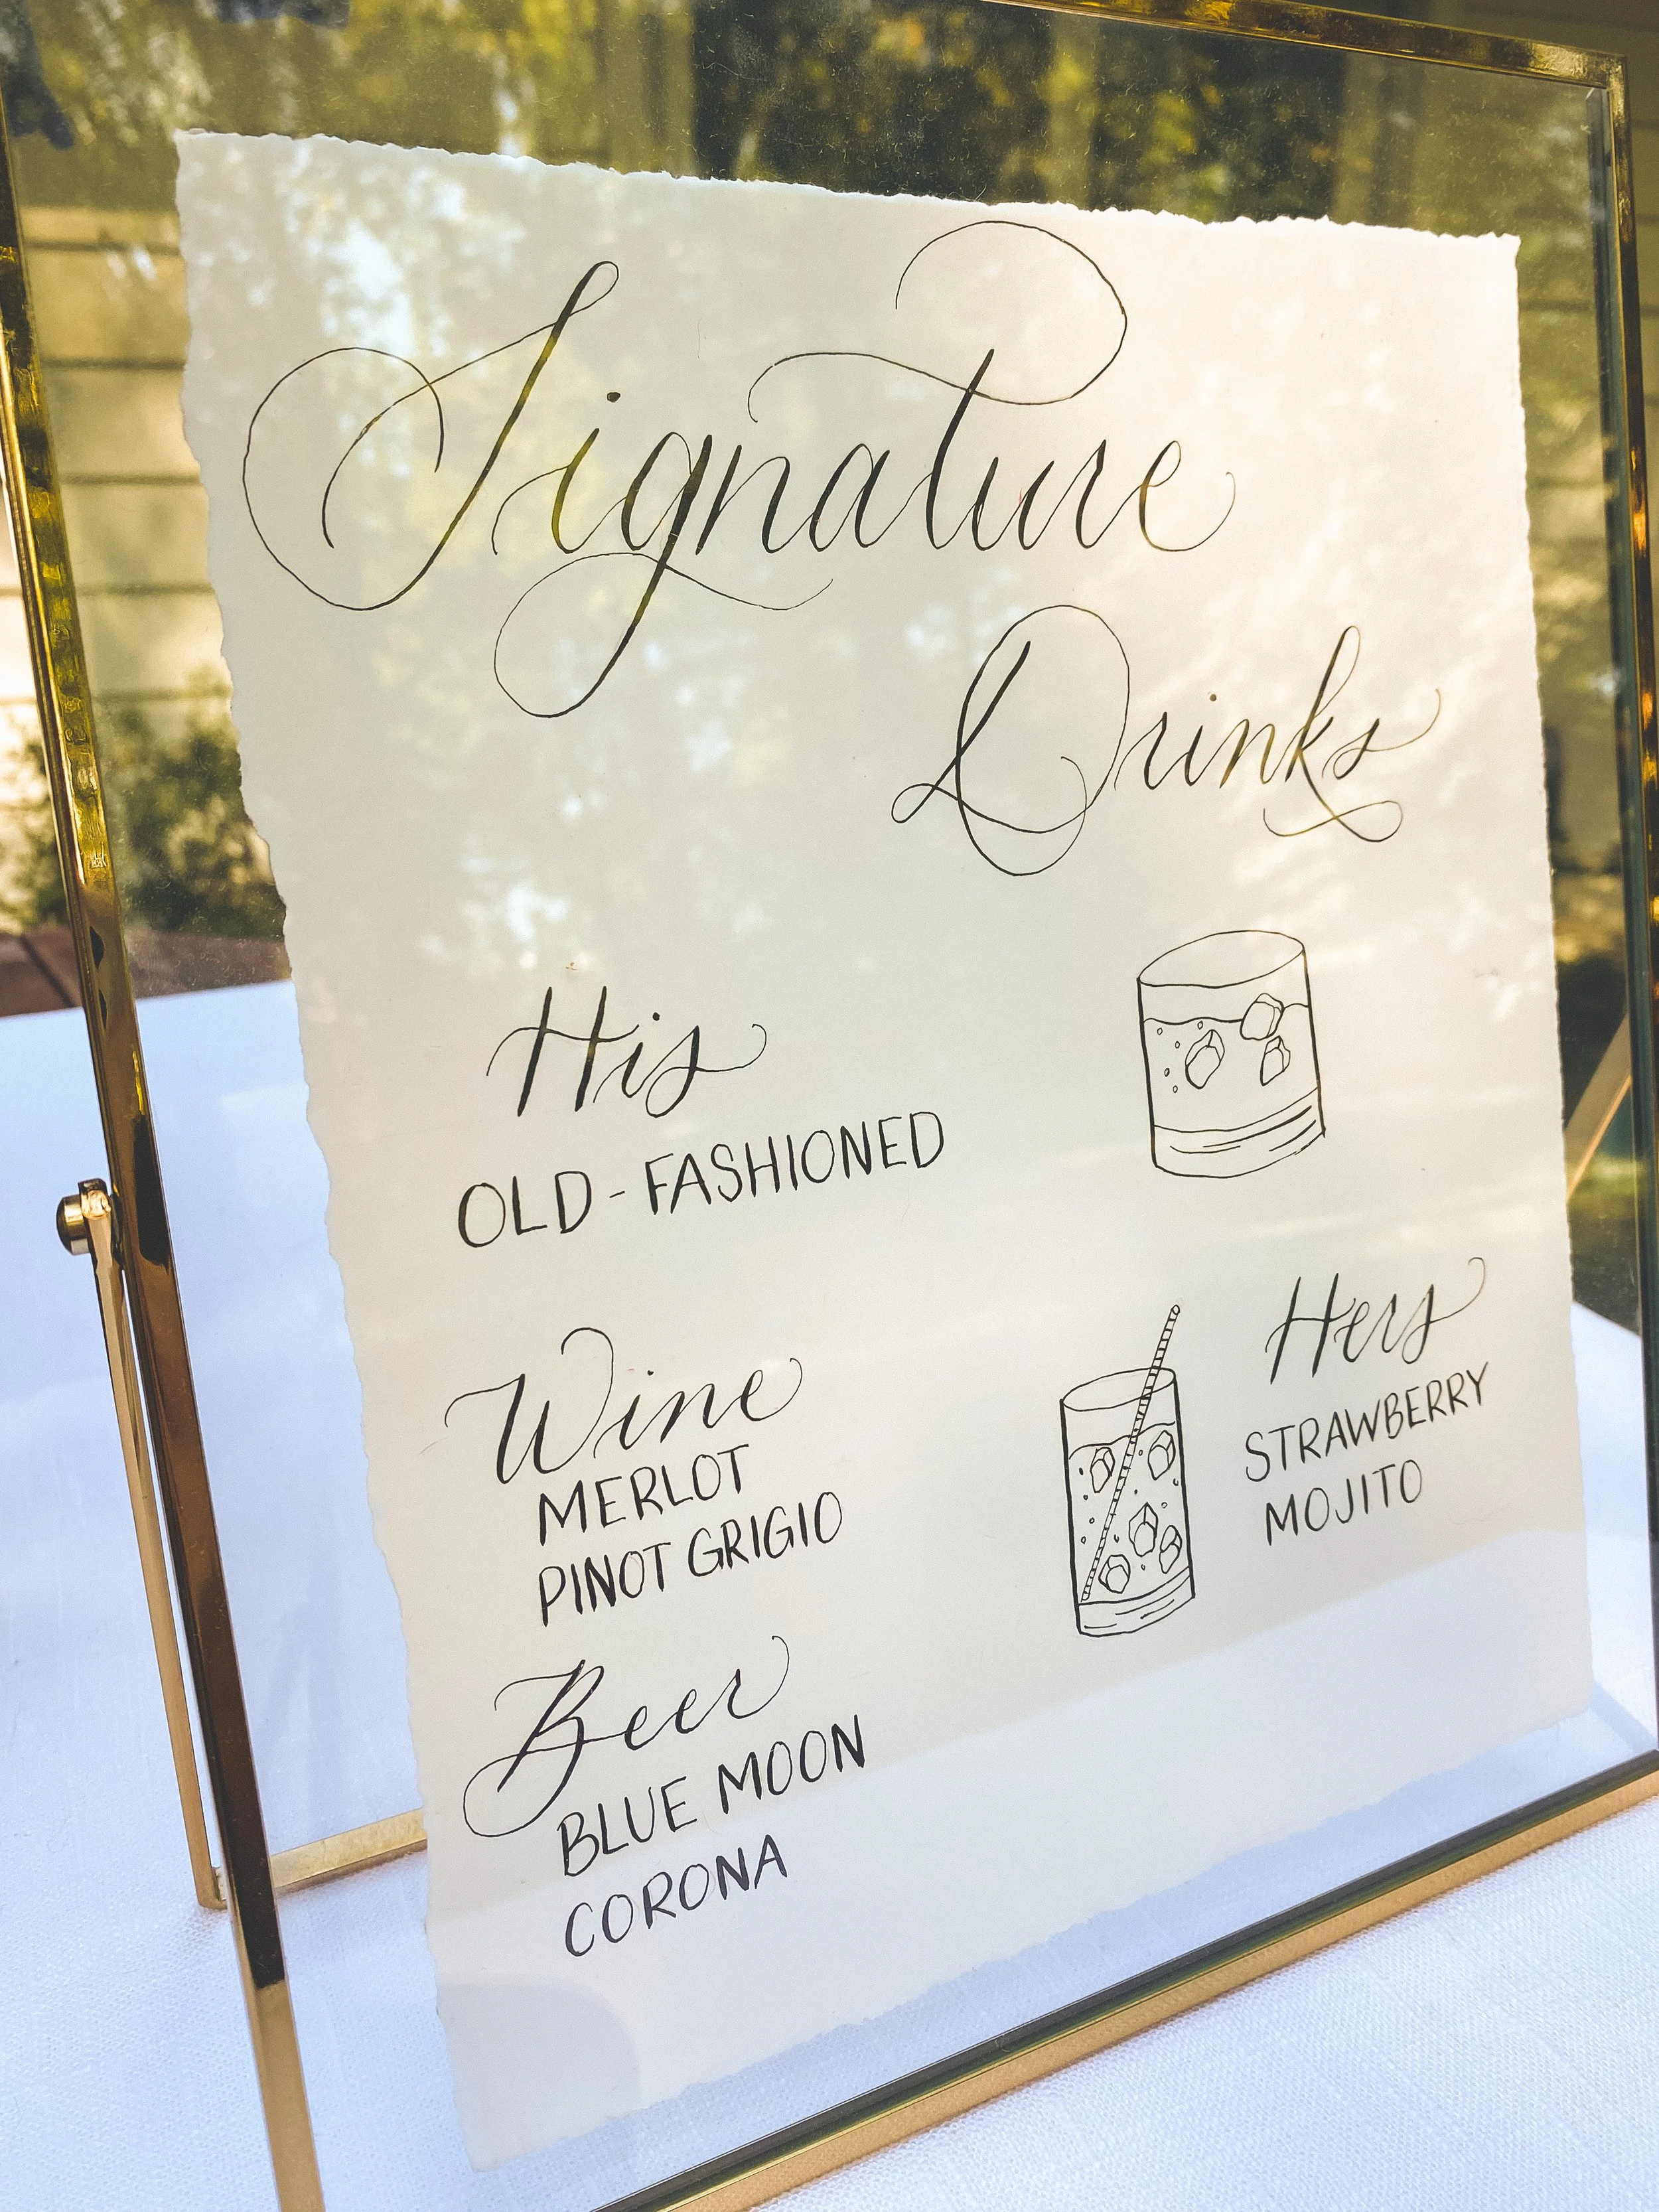 Signature
Drinks
His
OLD-FASHIONED
Hers
STRAWBERRY
MOJITO
Wine
MERLOT
PINOT GRIGIO
Beer
BLUE MOON
CORONA